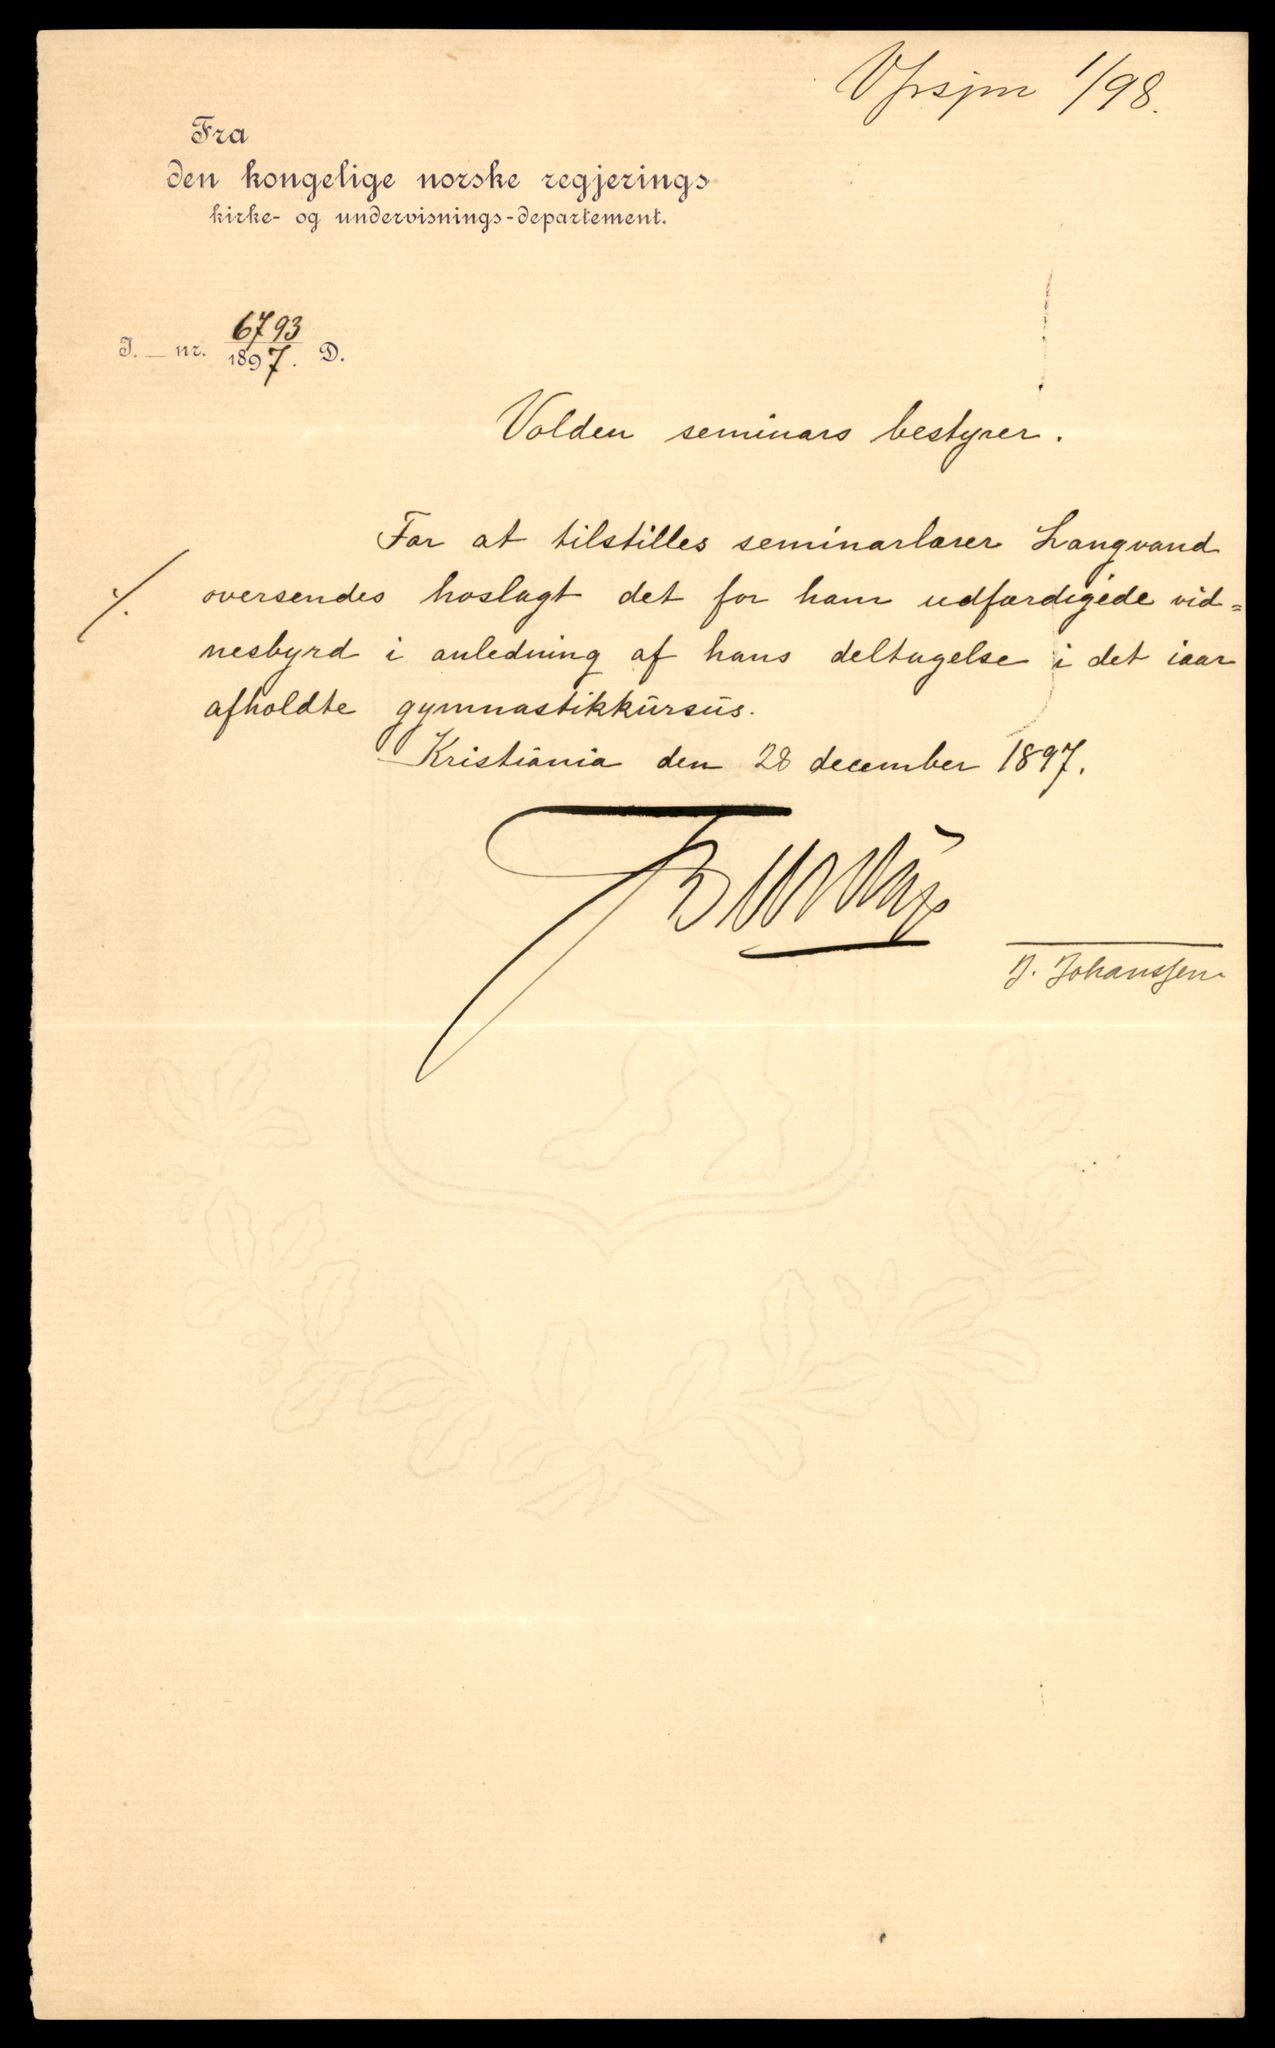 1/98.
Fra
den kongelige norske regjerings
kirke- og undervisnings-departement.
J. — nr. 6793
1897. D.
Volden seminars bestyrer.
For at tilstilles seminarlærer Langvand
%. oversendes hoslagt det for ham udfærdigede vid=
nesbyrd i anledning af hans deltagelse i det iaar
afholdte gymnastikkursus.
Kristiania den 28 december 1897.
J. Johanssen